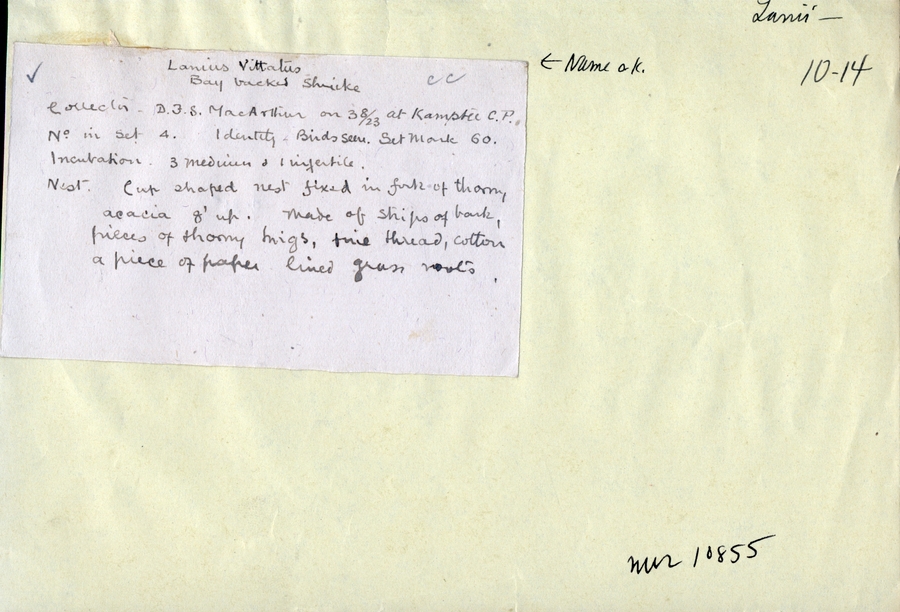 Lanii —
10-14
← Name ok.
Lanius Vittatus
Bay backed Shrike
CC
Collector - D.F.S. MacArthur on 3/8/23 at Kamptee C.P.
No in set 4. Identity - Birds seen. Set Mark 60.
Incubation. 3 medium & 1 infertile.
Nest. Cup shaped nest fixed in fork of thorny
acacia 8' up. Made of strips of bark,
pieces of thorny twigs, fine thread, cotton
a piece of paper lined grass roots.
10855